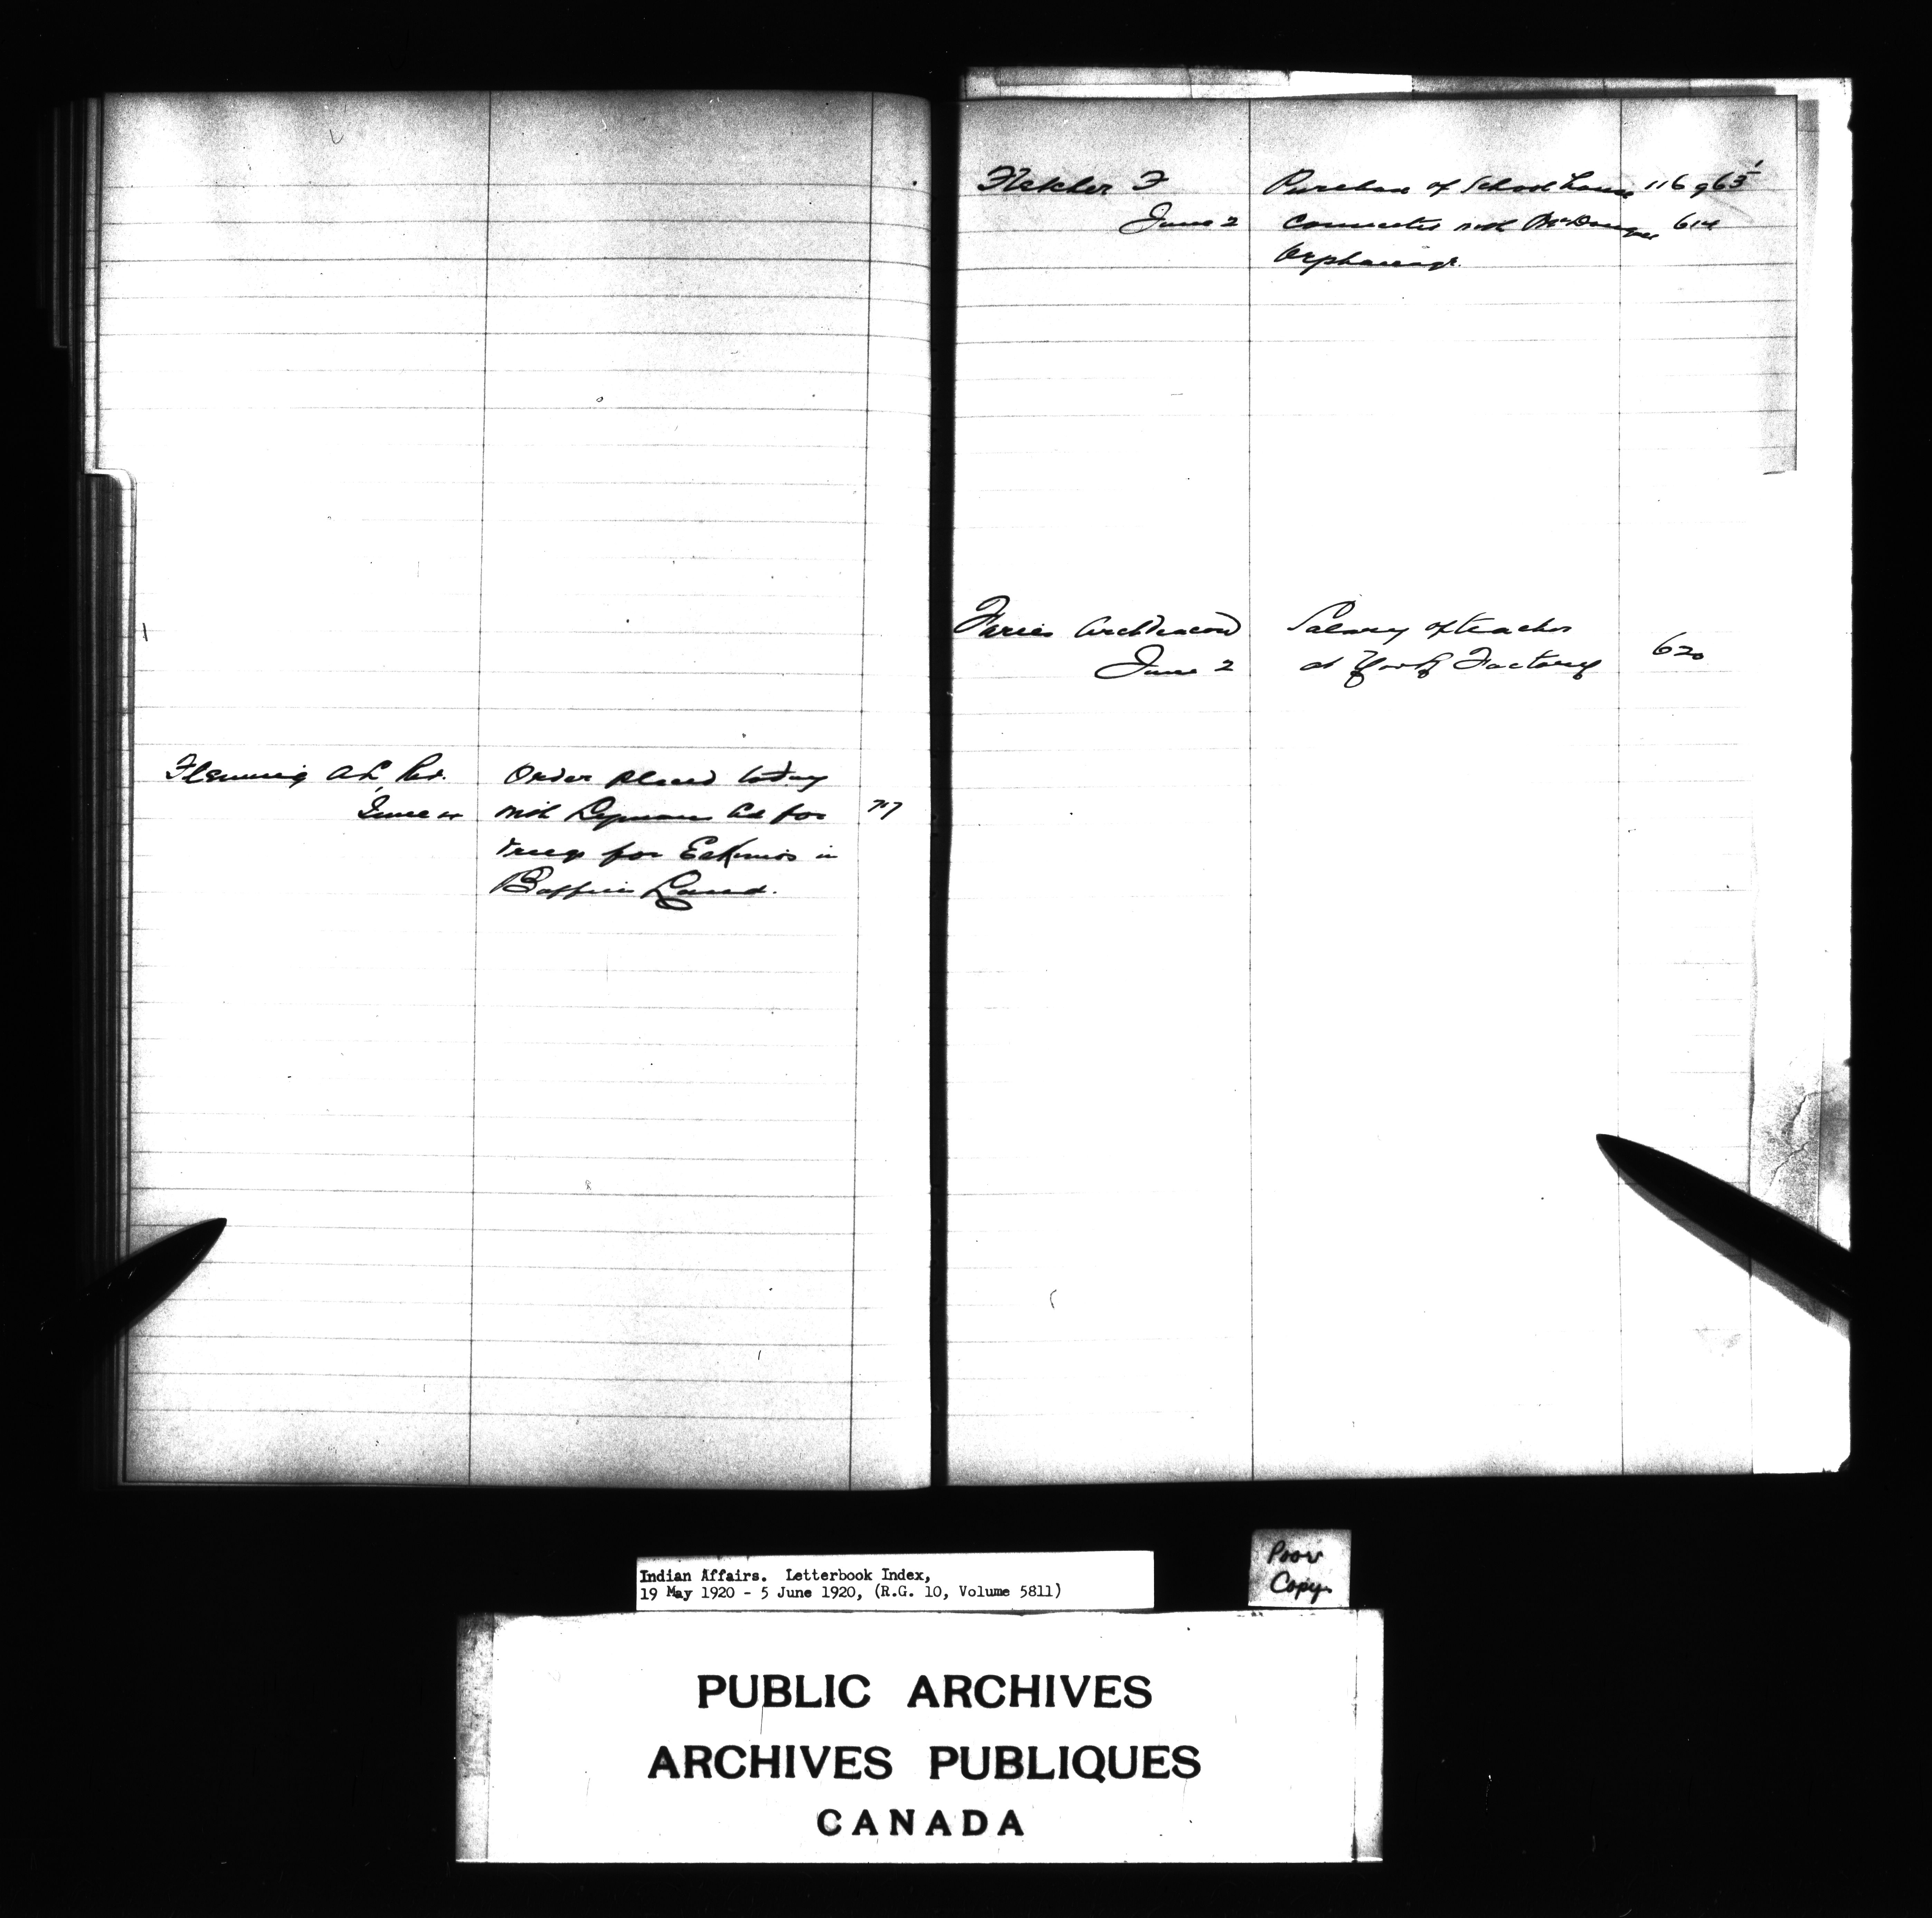 Fleming A L Rev. Order placed today
June 4 with Lyman Ltd for 717
drugs for Eskimos in
Baffin Land.
Fletcher F Purchase of School house 116963
June 2 connected with McDougall 614
Orphanage.
Faries Archdeacon Salary of teacher
June 2 at York Factory 620
Indian Affairs. Letterbook Index,
19 May 1920 - 5 June 1920, (R.G. 10, Volume 5811)
Poor
Copy.
PUBLIC ARCHIVES
ARCHIVES PUBLIQUES
CANADA